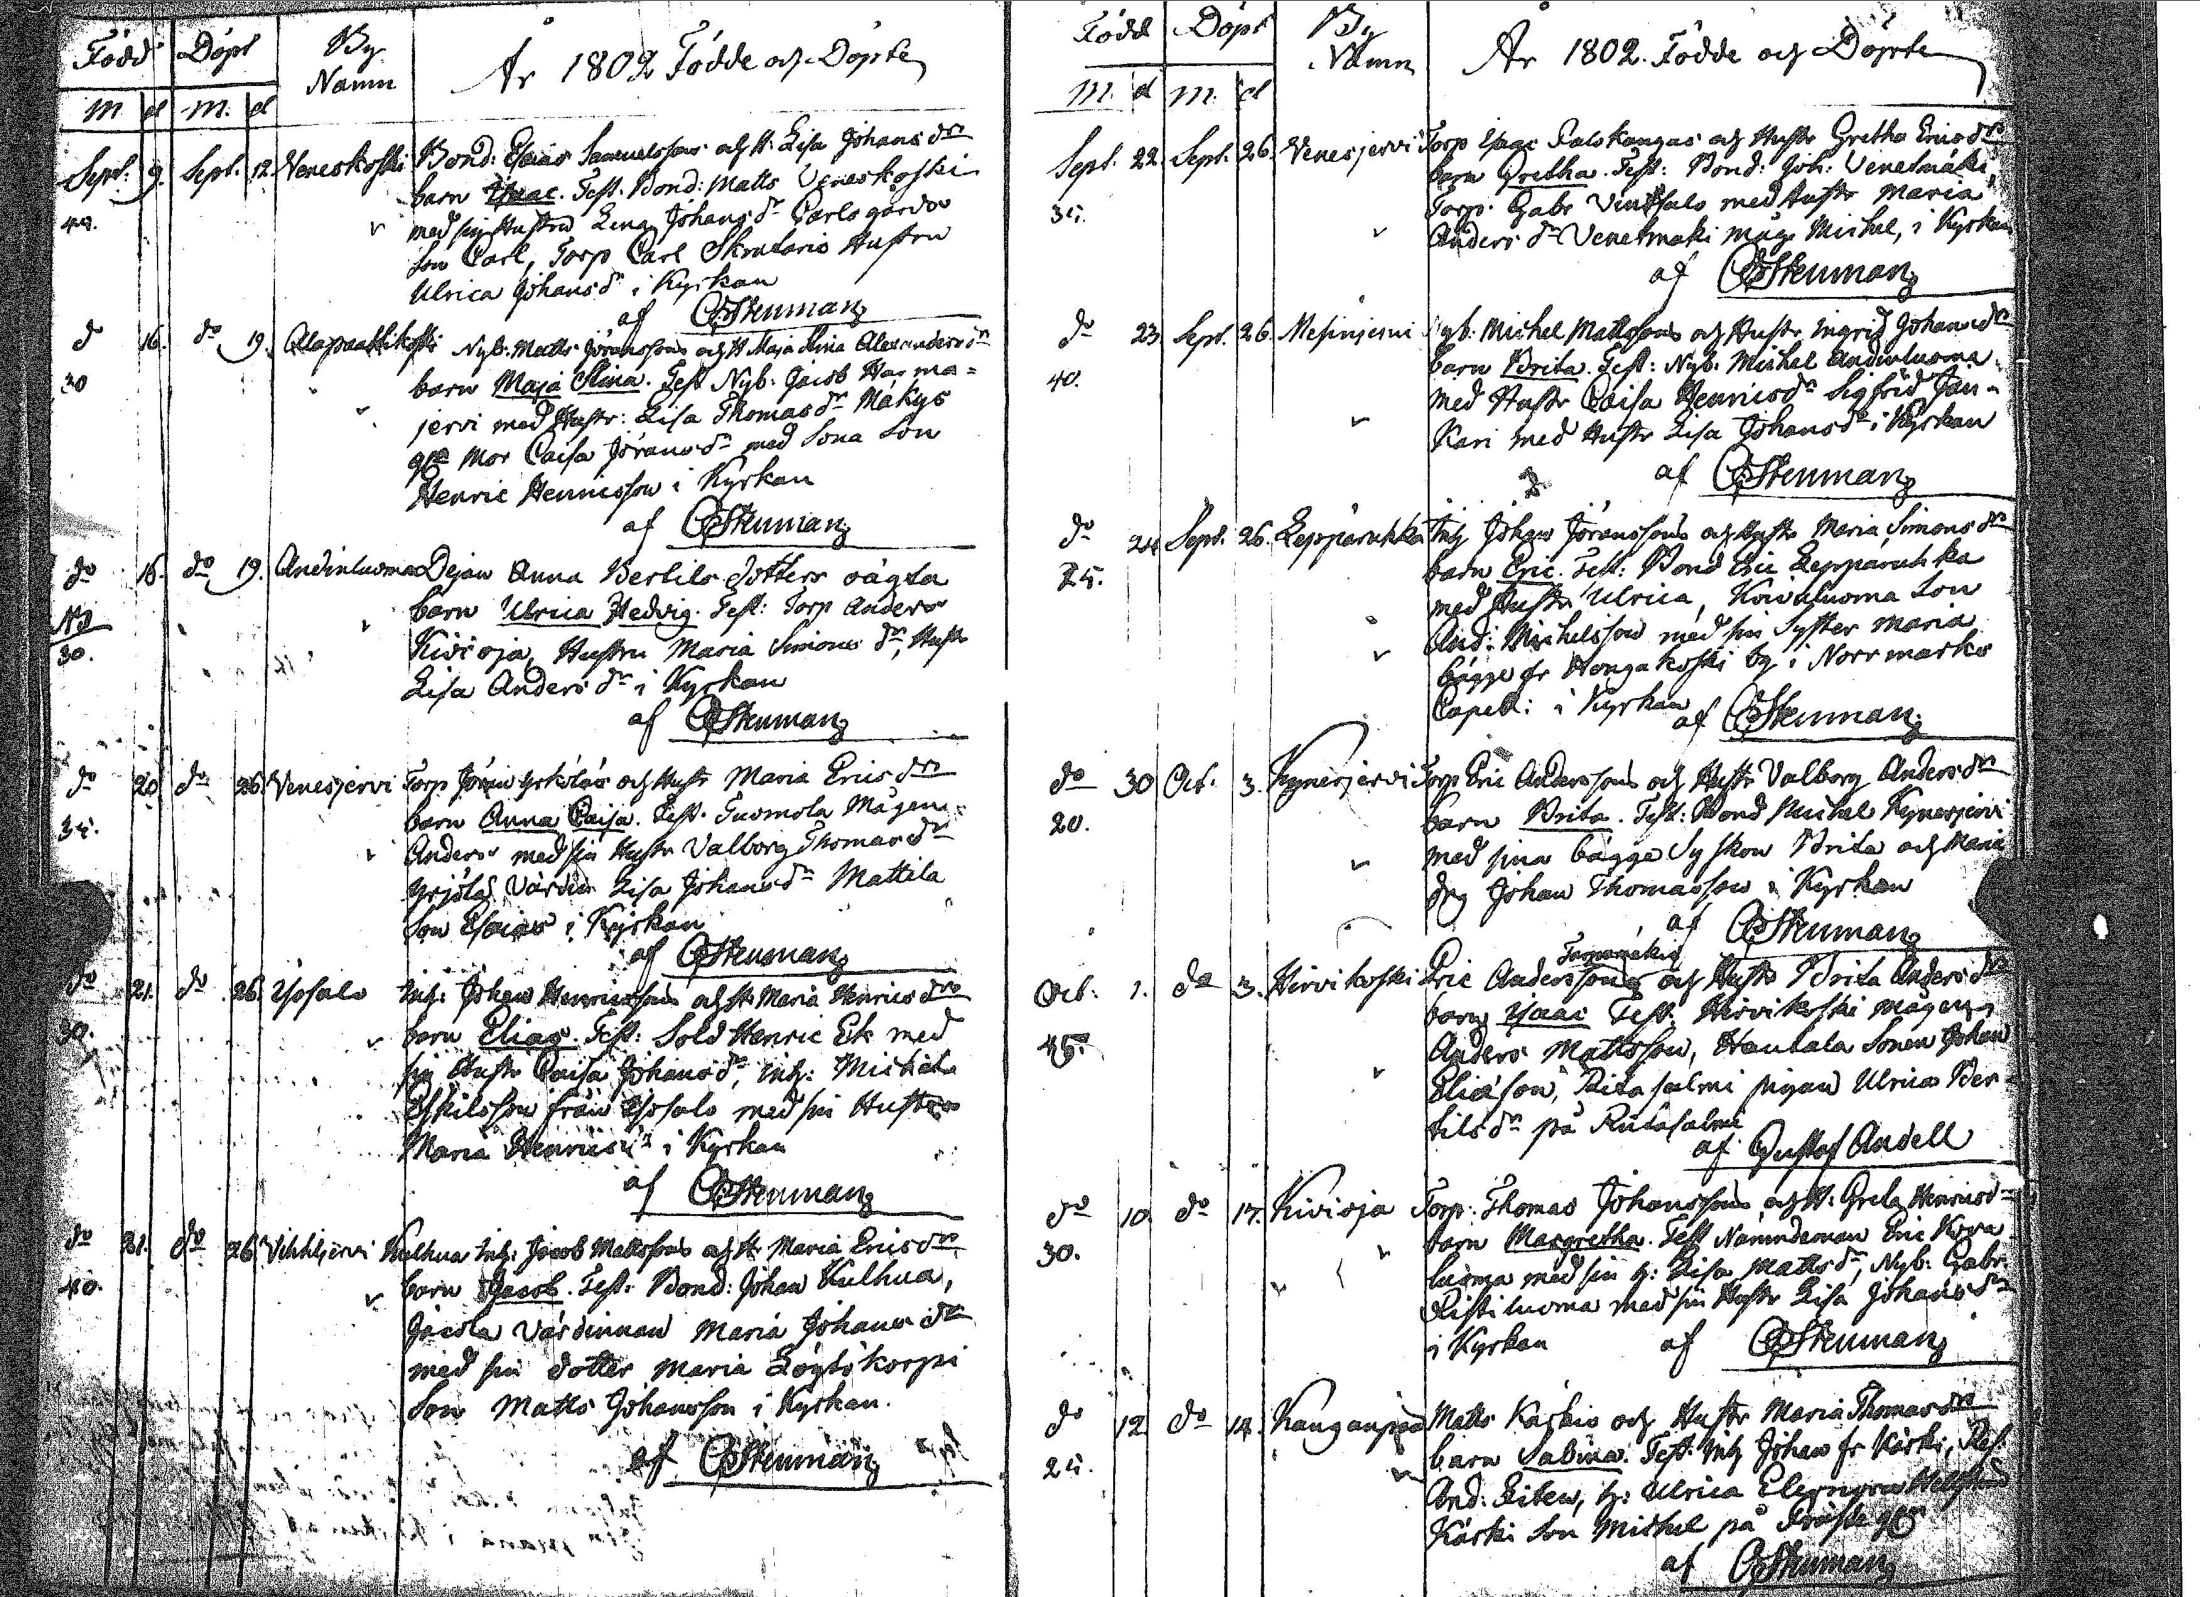 Född Döpt By Namn År 1802 Födde och Döpte
M d M. d
Sept. 9. Sept. 12. Veneskoski Bond: Esaias Samuelssons och H. Lisa Johans dr
barn Isaac. Test. Bond: Matts Veneskoski
44. med sin Hustru Lena Johans dr Carlsgårds
son Carl, Torp Carl Skrutaris Hustru
Ulrica Johans dr i Kyrkan
af CGStenman
do 16. do 19. Alapaattikoski Nyb: Matts Jöranssons och H Maja Stina Alexanders dr
30 barn Maja Stina. Test Nyb: Jacob Harma=
jervi med Hustr: Lisa Thomas dr Makys
Mor Caisa Jörans dr med Sona Son
Henric Henricsson i Kyrkan
af CGStenman
do 16. do 19. Andinluoma Dejan Anna Bertils Dotters oägta
barn Ulrica Hedvig. Test: Torp Anders
Kivioja, Hustru Maria Simons dr, Hustr
30. Lisa Anders dr i Kyrkan
af CGStenman
do 20 do 26. Venesjervi Torp Jöran Yrkölás och Hustr Maria Erics dr
34. barn Anna Caisa. Test. Tuomola Mågen
Anders med sin Hustr Valborg Thomas dr
Yrjölas Värdin Lisa Johans dr Mattila
Son Esaias i Kyrkan
af CGStenman
do 21. do 26. Ypsalo Inh: Johan Henricssons och H. Maria Henrics dr
30. barn Elias. Test: Sold Henric Ek med
sin Hustr Caisa Johans dr, Inh: Michel
Eskilsson från Ypsalo med sin Hustro
Maria Henrics dr i Kyrkan
af CGStenman
do 21. do 26. Vihhljervi Kulhua Inh: Jacob Mattssons och H Maria Erics dr,
40. barn Jacob. Test: Bond: Johan Kulhua,
Jacola Värdinnan Maria Johans dr
med sin dotter Maria Löytökorpi
Son Matts Johansson i Kyrkan.
af CGStenman
Född Döpt By Namn År 1802. Födde och Döpte
M. d M. d
Sept. 22. Sept. 26. Venesjervi Torp Isaac Palokangas och Hustr Gretha Erics dr
barn Gretha. Test: Bond: Joh: Venetmäki,
34. Torp. Gabr Vintsalo med Hustr Maria
Anders dr Venetmaki måge Michel, i Kyrkan
af CGStenman
do 23 Sept. 26. Mesinjervi Nyb: Michel Mattssons och Hustr Ingrid Johans dr
40. barn Brita. Test: Nyb. Michel Andinluoma
med Hustr Caisa Henrics dr Sigfrid Jan-
Kari med Hustr Lisa Johans dr i Kyrkan
af CGStenman
do 24 Sept. 26. Lepparuhka Inh Johan Jöranssons och Hustr Maria Simons dr
24. barn Eric. Test: Bond Eric Lepparuhka
med Hustr Ulrica, Koivuluoma Son
And: Michelsson med sin Syster Maria
bägge fr Hongakoski by i Norrmarks
Capell: i Kyrkan
af CGStenman
do 30 Oct. 3. Kynesjervi Torp Eric Anderssons och Hustr Valborg Anders dr
20. barn Brita. Test: Bond Michel Kynesjervi
med sina bägge Syskon Brita och Maria
Johan Thomasson i Kyrkan
af CGStenman
Oct. 1. do 3. Hirvikoski Eric Anderssons och Hustr Brita Anders dr
45. barn Isaac Test. Hirvikoski mågen
Anders Mattsson, Hautala Sonen Johan
Eliäson, Ritasalmi pigan Ulrica Ber-
tils dr på Ritasalmi
af Gustaf Andell
do 10. do 17. Kivioja Torp: Thomas Johanssons och H: Greta Henrics dr
30. barn Margretha. Test Nämndeman Eric Kiva
luoma med sin h: Lisa Matts dr, Nyb: Gabr.
Ristiluoma med sin Hustr Lisa Johans dr
i Kyrkan af CGStenman
do 12. do 14. Kanganpä Matts Karkis och Hustr Maria Thomas dr
24. barn Sabina. Test. Inh Johan fr Kärki, Ref.
And: Liten, h: Ulrica
Kärki Son Michel på
af CGStenman